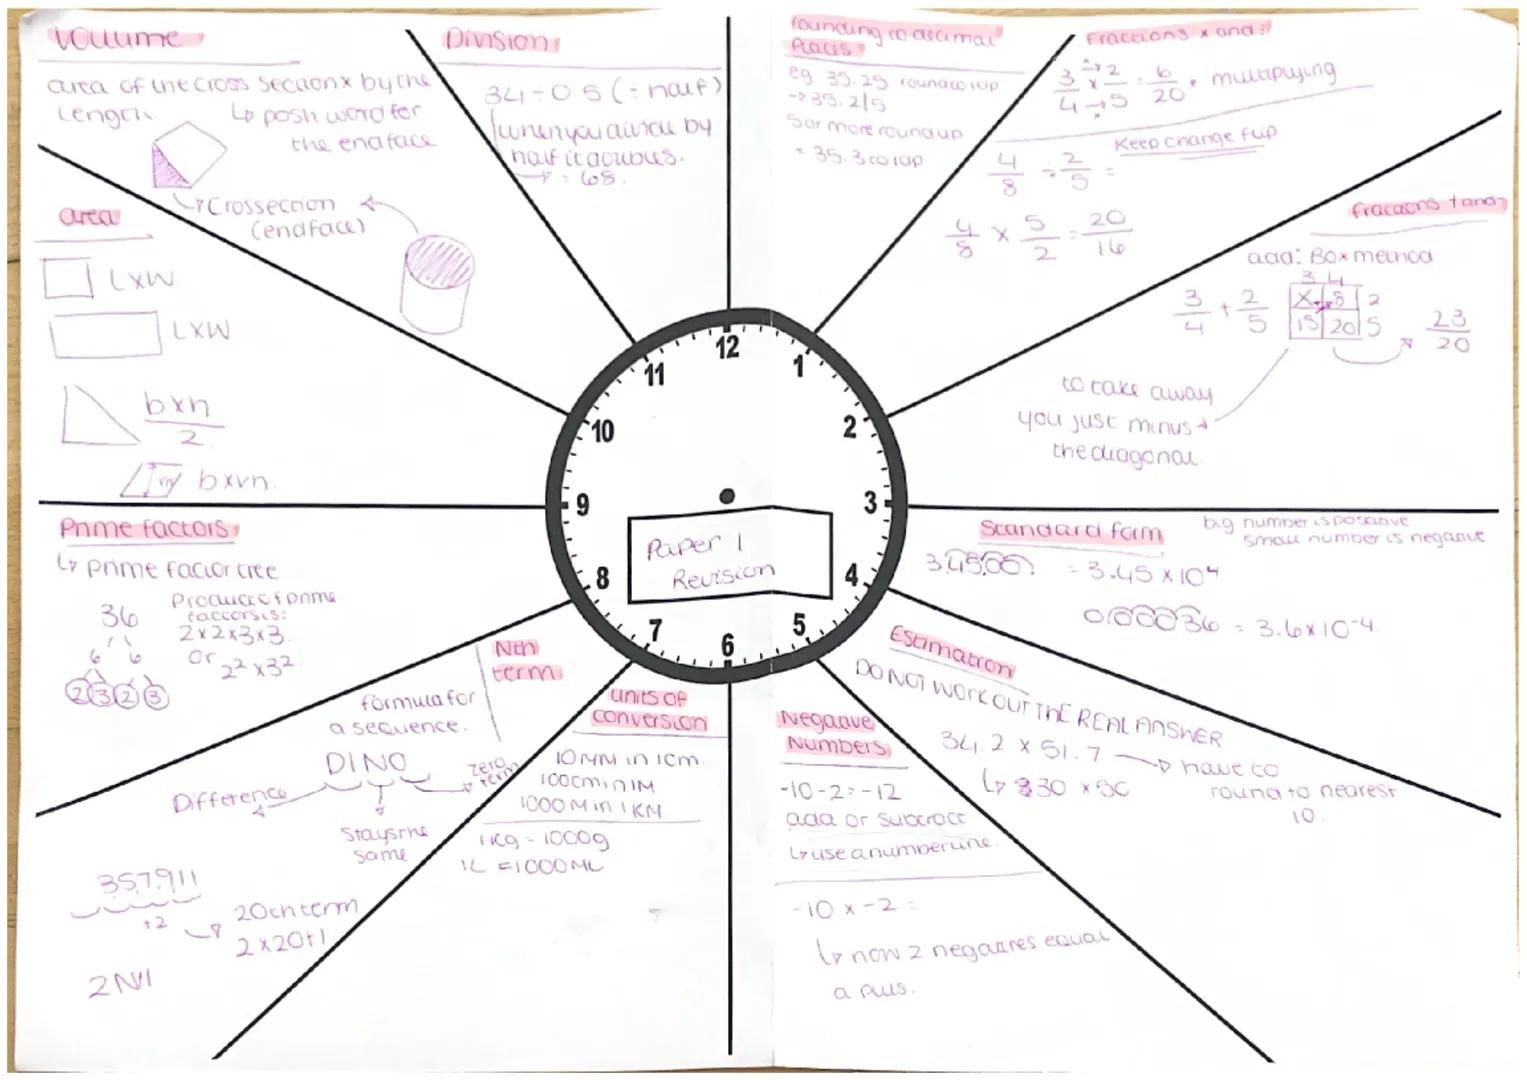 Volume
area of the cross section x by the
length.
↳ posh word for
the end face
↳ Crossection
(endface)
Division
34 ÷ 0.5 (÷ half)
when you divide by
half it doubles.
→ = 68.
rounding to decimal
Places
eg 35.25 round to 1dp
→ 35.2|5
5 or more round up
= 35.3 to 1dp
Fractions x and ÷
3/4 x 2/5 = 6/20 . multiplying
Keep change flip
4/8 ÷ 2/5 =
4/8 x 5/2 = 20/16
fractions + and -
add: Box method
3 4
3/4 + 2/5
X 8 2
15 20 5
23/20
to take away
you just minus
the diagonal
Standard form
big number is positive
small number is negative
3.4500. = 3.45 x 10⁴
0.00036 = 3.6 x 10⁻⁴
Estimation
DO NOT WORK OUT THE REAL ANSWER
34.2 x 51.7 → have to
round to nearest
10.
↳ 30 x 50
Negative
Numbers
-10 - 2 = -12
add or subtract
↳ use a number line.
-10 x -2 =
↳ now 2 negatives equal
a plus.
units of
conversion
10MM in 1cm
100cm in 1M
1000M in 1KM
1kg = 1000g
1L = 1000ML
Nth
term
formula for
a sequence.
DINO
Difference
Stays the
same
zero
term
3 5 7 9 11
+2
20th term
2 x 20+1
2N+1
Prime factors
↳ prime factor tree
36
6 6
2 3 2 3
Product of prime
factors is:
2x2x3x3.
or 2² x 3².
area
L x W
L x W
b x h
2
vh
b x vh.
12
1
2
3
4
5
6
7
8
9
10
11
Paper 1
Revision